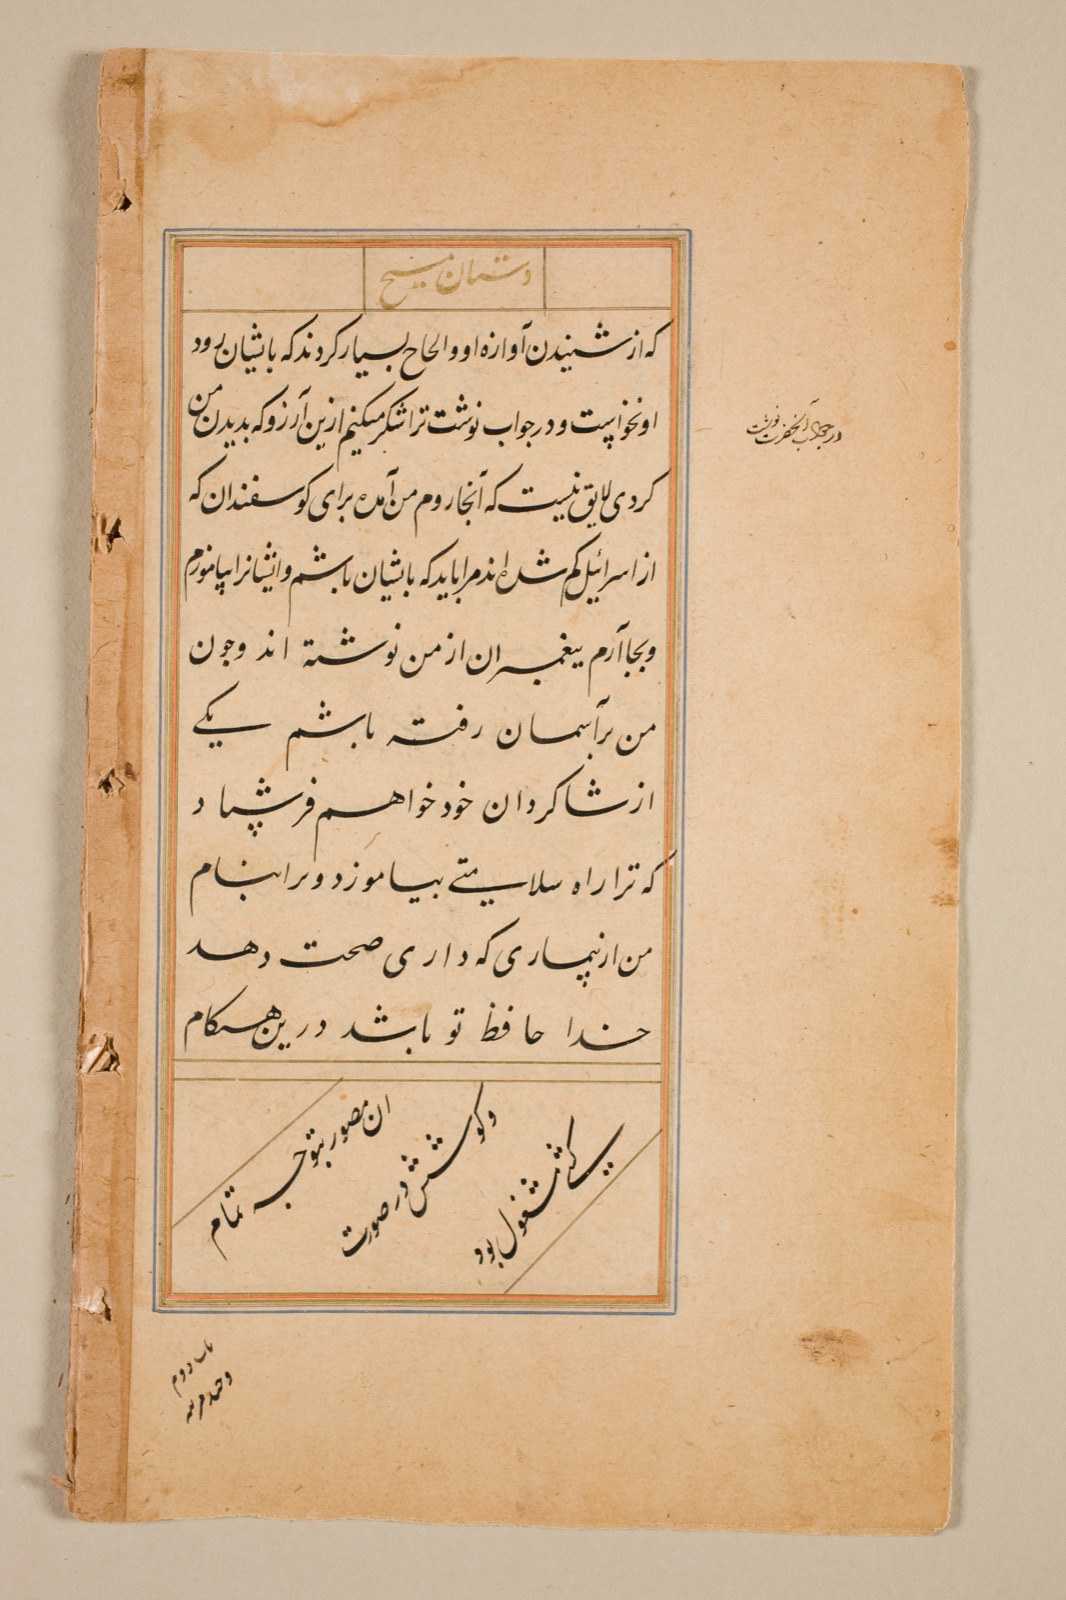 داستان مسیح
که از شنیدن آوازه او و الحاح بسیار کردند که باایشان برود
او نخواست و در جواب نوشت ترا شکر میکنم ازین آرزو که بدیدن من
کردی لایق نیست که آنجا روم من آمده برای کوسفندان که
از اسرائیل کم شده اند مرا باید که باایشان باشم و ایشانرا بیاموزم
و بجا آرم پیغمبران از من نوشته اند و چون
من بر آسمان رفته باشم یکی
از شاکردان خود خواهم فرستاد
که ترا راه سلامتی بیاموزد و برا بنام
من از بیماری که داری صحت دهد
خدا حافظ تو باشد درین هنکام
ان مصور بتوجه تمام
و کوشش در صورت
کشی مشغول بود
در جواب آنحضرت نوشت
باب دوم